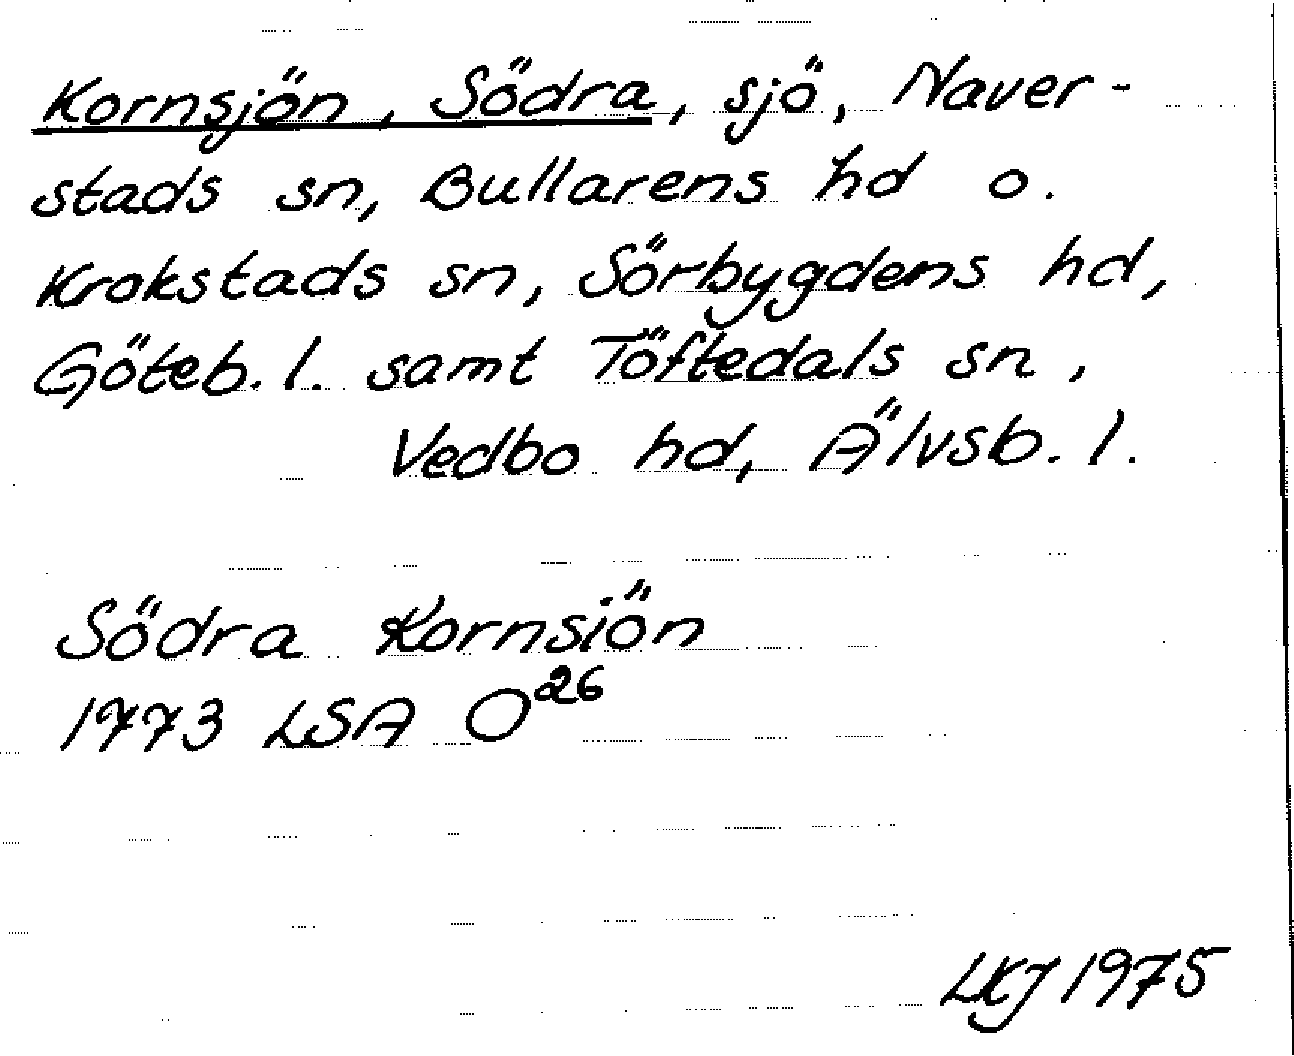 Kornsjön, Södra, sjö, Naver-
stads sn, Bullarens hd o.
Krokstads sn, Sörbygdens hd,
Göteb. l. samt Töftedals sn,
Vedbo hd, Älvsb. l.
Södra Kornsiön
1773 LSA O26
LKJ 1975